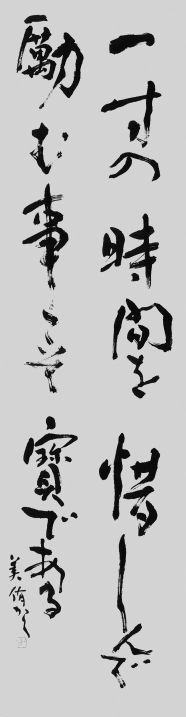 一寸の時間を惜しんで
励む事こそ寳である
美侑かく